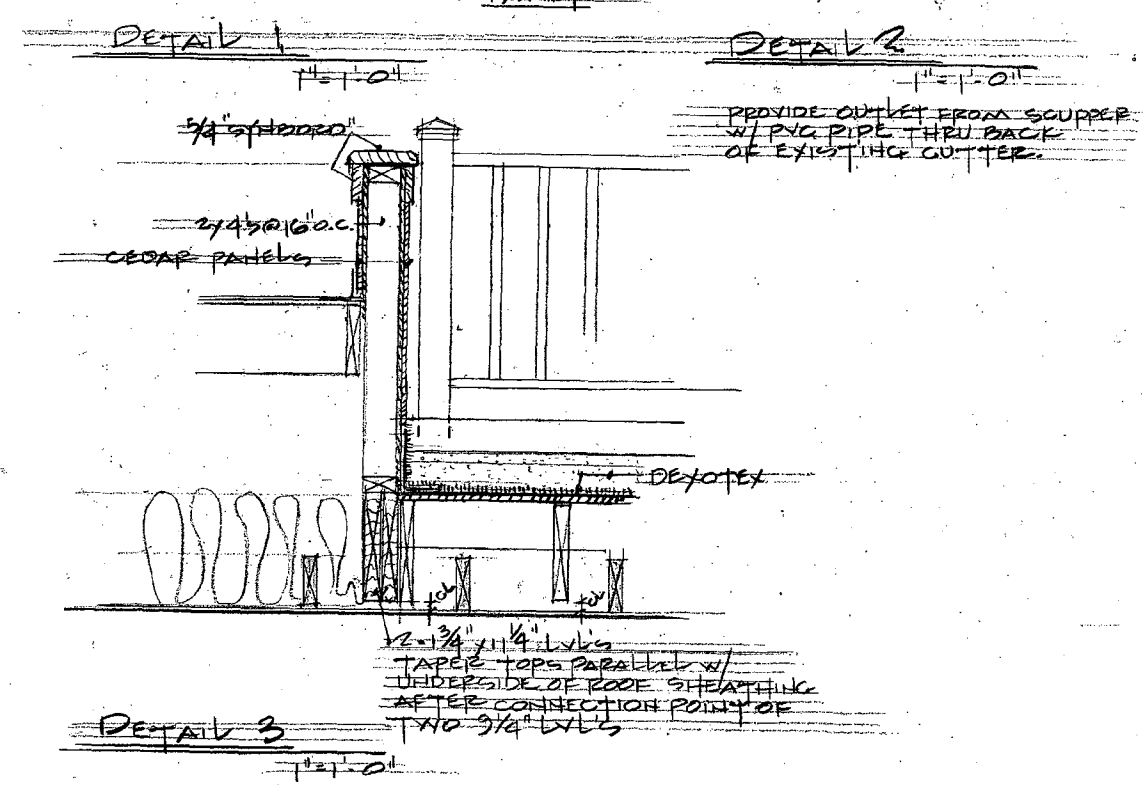 DETAIL 1
1"=1'-0"
DETAIL 2
1"=1'-0"
PROVIDE OUTLET FROM SCUPPER
W/ PVC PIPE THRU BACK
OF EXISTING GUTTER.
2x4's@16"O.C.
CEDAR PANELS
DEXOTEX
2-1 3/4"x11 1/4" LVL'S
TAPER TOPS PARALLEL W/
UNDERSIDE OF ROOF SHEATHING
AFTER CONNECTION POINT OF
TWO 9 1/4" LVL'S
DETAIL 3
1"=1'-0"